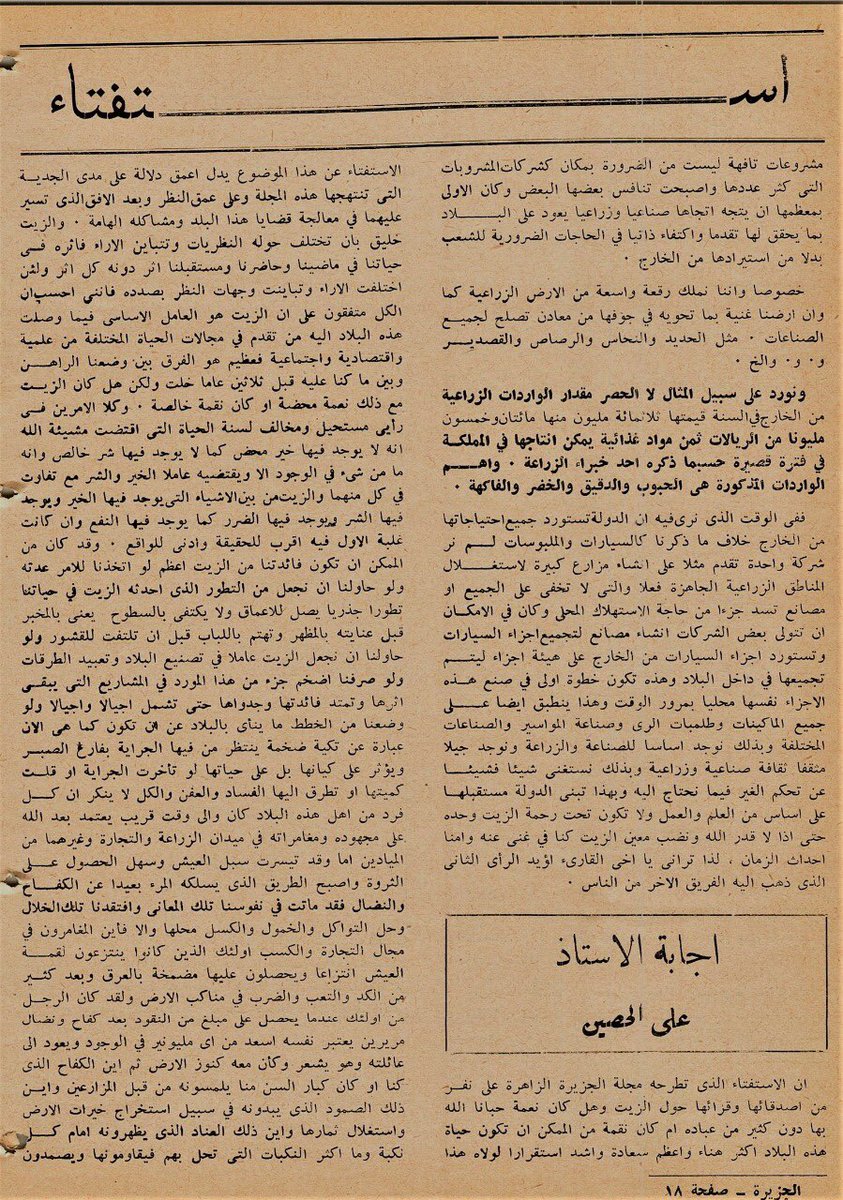 استفتاء
مشروعات تافهة ليست من الضرورة بمكان كشركات المشروبات
التى كثر عددها واصبحت تنافس بعضها البعض وكان الاولى
بمعظمها ان يتجه اتجاها صناعيا وزراعيا يعود على البلاد
بما يحقق لها تقدما واكتفاء ذاتيا في الحاجات الضرورية للشعب
بدلا من استيرادها من الخارج ٠
خصوصا واننا نملك رقعة واسعة من الارض الزراعية كما
وان ارضنا غنية بما تحويه في جوفها من معادن تصلح لجميع
الصناعات ٠ مثل الحديد والنحاس والرصاص والقصدير
و ٠ و ٠ والخ ٠
ونورد على سبيل المثال لا الحصر مقدار الواردات الزراعية
من الخارج في السنة قيمتها ثلاثمائة مليون منها مائتان وخمسون
مليونا من الريالات ثمن مواد غذائية يمكن انتاجها في المملكة
في فترة قصيرة حسبما ذكره احد خبراء الزراعة ٠ واهم
الواردات المذكورة هى الحبوب والدقيق والخضر والفاكهة ٠
ففى الوقت الذى نرى فيه ان الدولة تستورد جميع احتياجاتها
من الخارج خلاف ما ذكرنا كالسيارات والملبوسات لم نر
شركة واحدة تقدم مثلا على انشاء مزارع كبيرة لاستغلال
المناطق الزراعية الجاهزة فعلا والتى لا تخفى على الجميع او
مصانع تسد جزءا من حاجة الاستهلاك المحلى وكان في الامكان
ان تتولى بعض الشركات انشاء مصانع لتجميع اجزاء السيارات
وتستورد اجزاء السيارات من الخارج على هيئة اجزاء ليتم
تجميعها في داخل البلاد وهذه تكون خطوة اولى في صنع هذه
الاجزاء نفسها محليا بمرور الوقت وهذا ينطبق ايضا على
جميع الماكينات وطلمبات الرى وصناعة المواسير والصناعات
المختلفة وبذلك نوجد اساسا للصناعة والزراعة ونوجد جيلا
مثقفا ثقافة صناعية وزراعية وبذلك نستغنى شيئا فشيئا
عن تحكم الغير فيما نحتاج اليه وبهذا تبنى الدولة مستقبلها
على اساس من العلم والعمل ولا تكون تحت رحمة الزيت وحده
حتى اذا لا قدر الله ونضب معين الزيت كنا في غنى عنه وامنا
احداث الزمان ، لذا ترانى يا اخى القارىء اؤيد الرأى الثانى
الذى ذهب اليه الفريق الاخر من الناس ٠
اجابة الاستاذ
على الحصين
ان الاستفتاء الذى تطرحه مجلة الجزيرة الزاهرة على نفر
من اصدقائها وقرائها حول الزيت وهل كان نعمة حبانا الله
بها دون كثير من عباده ام كان نقمة من الممكن ان تكون حياة
هذه البلاد اكثر هناء واعظم سعادة واشد استقرارا لولاه هذا
الاستفتاء عن هذا الموضوع يدل اعمق دلالة على مدى الجدية
التى تنتهجها هذه المجلة وعلى عمق النظر وبعد الافق الذى تسير
عليهما في معالجة قضايا هذا البلد ومشاكله الهامة ٠ والزيت
خليق بان تختلف حوله النظريات وتتباين الاراء فاثره فى
حياتنا في ماضينا وحاضرنا ومستقبلنا اثر دونه كل اثر ولئن
اختلفت الاراء وتباينت وجهات النظر بصدده فانني احسب ان
الكل متفقون على ان الزيت هو العامل الاساسى فيما وصلت
هذه البلاد اليه من تقدم في مجالات الحياة المختلفة من علمية
واقتصادية واجتماعية فعظيم هو الفرق بين وضعنا الراهن
وبين ما كنا عليه قبل ثلاثين عاما خلت ولكن هل كان الزيت
مع ذلك نعمة محضة او كان نقمة خالصة ٠ وكلا الامرين فى
رأيى مستحيل ومخالف لسنة الحياة التى اقتضت مشيئة الله
انه لا يوجد فيها خير محض كما لا يوجد فيها شر خالص وانه
ما من شىء في الوجود الا ويقتضيه عاملا الخير والشر مع تفاوت
في كل منهما والزيت من بين الاشياء التى يوجد فيها الخير ويوجد
فيها الشر ويوجد فيها الضرر كما يوجد فيها النفع وان كانت
غلبة الاول فيه اقرب للحقيقة وادنى للواقع ٠ وقد كان من
الممكن ان تكون فائدتنا من الزيت اعظم لو اتخذنا للامر عدته
ولو حاولنا ان نجعل من التطور الذى احدثه الزيت في حياتنا
تطورا جذريا يصل للاعماق ولا يكتفى بالسطوح يعنى بالمخبر
قبل عنايته بالمظهر وتهتم باللباب قبل ان تلتفت للقشور ولو
حاولنا ان نجعل الزيت عاملا في تصنيع البلاد وتعبيد الطرقات
ولو صرفنا اضخم جزء من هذا المورد في المشاريع التى يبقى
اثرها وتمتد فائدتها وجدواها حتى تشمل اجيالا واجيالا ولو
وضعنا من الخطط ما ينأى بالبلاد عن ان تكون كما هى الان
عبارة عن تكية ضخمة ينتظر من فيها الجراية بفارغ الصبر
ويؤثر على كيانها بل على حياتها لو تأخرت الجراية او قلت
كميتها او تطرق اليها الفساد والعفن والكل لا ينكر ان كل
فرد من اهل هذه البلاد كان والى وقت قريب يعتمد بعد الله
على مجهوده ومغامراته في ميدان الزراعة والتجارة وغيرهما من
الميادين اما وقد تيسرت سبل العيش وسهل الحصول على
الثروة واصبح الطريق الذى يسلكه المرء بعيدا عن الكفاح
والنضال فقد ماتت في نفوسنا تلك المعانى وافتقدنا تلك الخلال
وحل التواكل والخمول والكسل محلها والا فاين المغامرون في
مجال التجارة والكسب اولئك الذين كانوا ينتزعون لقمة
العيش انتزاعا ويحصلون عليها مضمخة بالعرق وبعد كثير
من الكد والتعب والضرب في مناكب الارض ولقد كان الرجل
من اولئك عندما يحصل على مبلغ من النقود بعد كفاح ونضال
مريرين يعتبر نفسه اسعد من اى مليونير في الوجود ويعود الى
عائلته وهو يشعر وكأن معه كنوز الارض ثم اين الكفاح الذى
كنا او كان كبار السن منا يلمسونه من قبل المزارعين واين
ذلك الصمود الذى يبدونه في سبيل استخراج خيرات الارض
واستغلال ثمارها واين ذلك العناد الذى يظهرونه امام كل
نكبة وما اكثر النكبات التى تحل بهم فيقاومونها ويصمدون
الجزيرة – صفحة ١٨